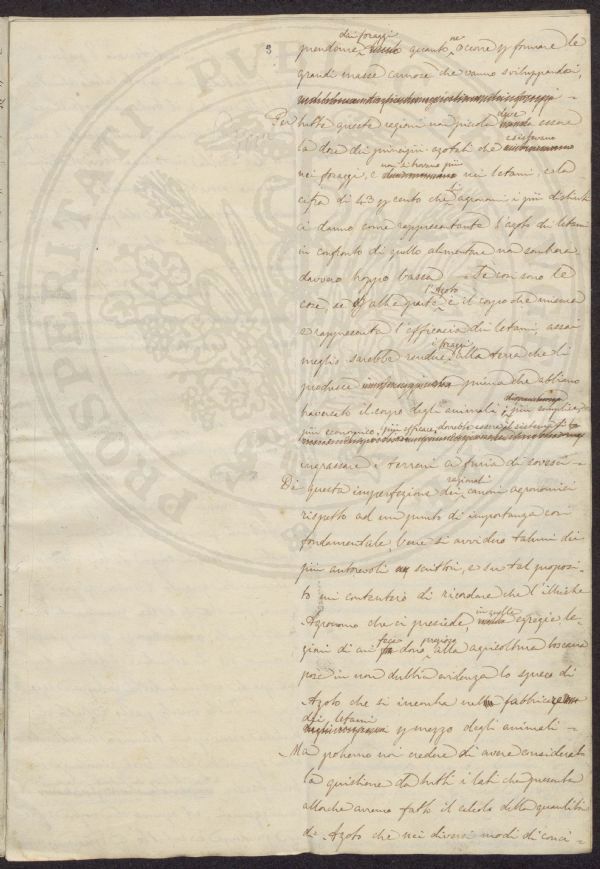 3
prenderne dai foraggi quanto ne occorre per formare le
grandi masse carnose che vanno sviluppandosi,
Per tutte queste ragioni non piccola deve essere
la dose dei principii azotati che esistevano
nei foraggi, e non si trovano più nei letami, e la
cifra di 43 per cento che agronomi i più distinti
ci danno come rappresentante l'azoto di letami
in confronto di quello alimentare non sembra
davvero troppo bassa. Se così sono le
cose, se d'altra parte l'Azoto è il corpo che misura
e rappresenta l'efficacia dei letami, assai
meglio sarebbe rendere i foraggi alla terra che li
produce prima che abbiano
traversato il corpo degli animali; più semplice,
più economico, più efficace, dovrebbe essere il sistema di
ingrassare i terreni a furia di sovesci -
Di questa imperfezione dei razionali canoni agronomici
rispetto ad un punto di importanza così
fondamentale, bene si avvidero taluni dei
più autorevoli scrittori, e su tal proposi-
to mi contenterò di ricordare che l'illustre
Agronomo che ci presiede, in quelle egregie le-
zioni di cui fece dono prezioso alla agricoltura toscana
pose in non dubbia evidenza lo spreco di
Azoto che si incontra nella fabbricazione
dei letami per mezzo degli animali -
Ma potremo noi credere di avere considerata
la quistione da tutti i lati che presenta
allorchè avremo fatto il calcolo della quantità
di Azoto che nei diversi modi di conci-
PROSPERITATI PVBLI